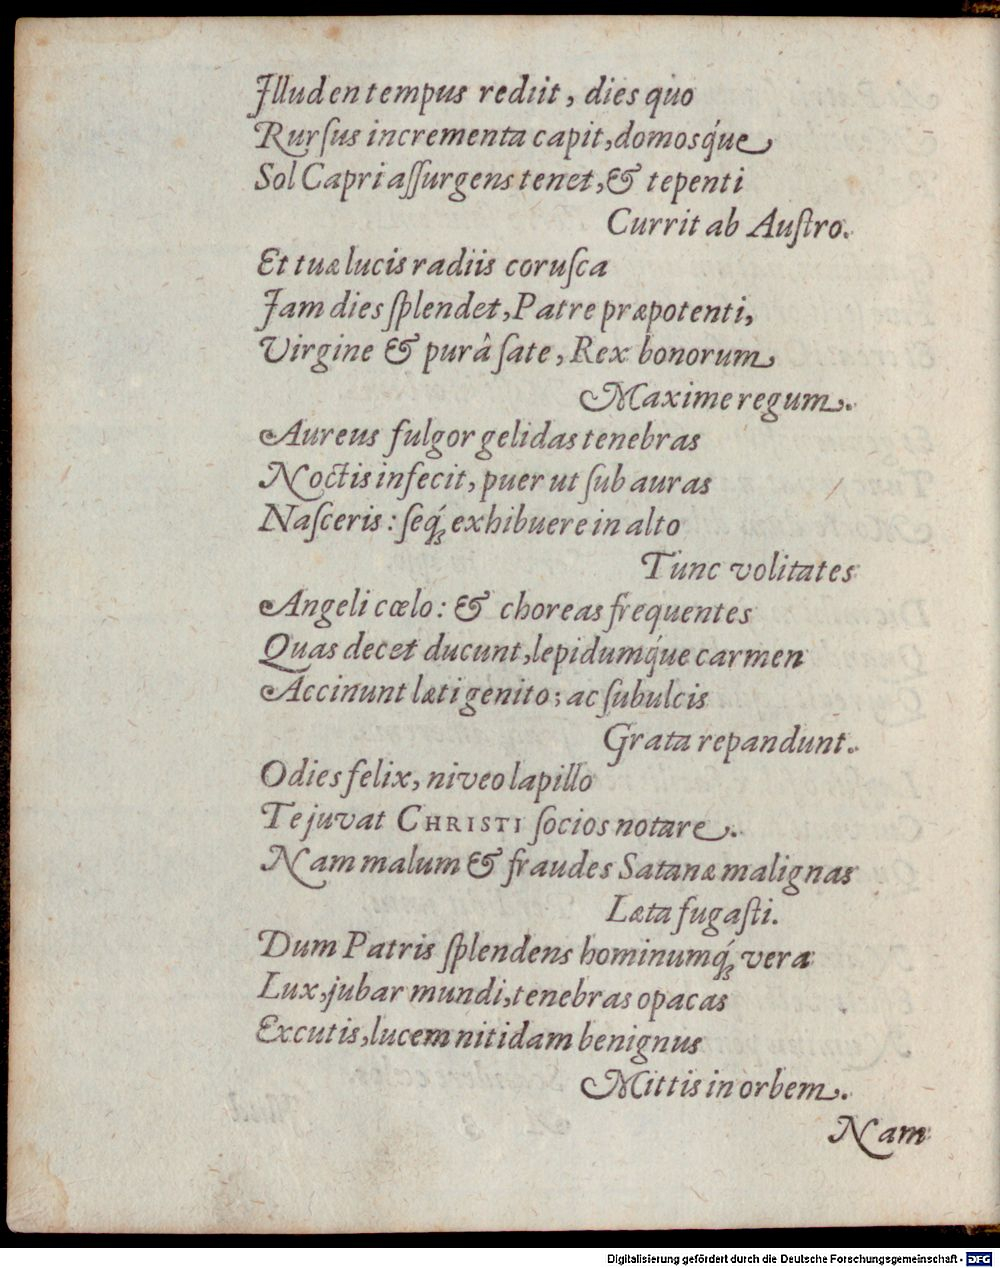 Illud en tempus rediit, dies quo
Rurſus incrementa capit, domosq́ue
Sol Capri aſſurgens tenet, & tepenti
Currit ab Auſtro.
Et tuæ lucis radiis coruſca
Jam dies ſplendet, Patre præpotenti,
Virgine & purâ ſate, Rex bonorum
Maxime regum.
Aureus fulgor gelidas tenebras
Noctis infecit, puer ut ſub auras
Naſceris: ſeq́; exhibuere in alto
Tunc volitates
Angeli cœlo: & choreas frequentes
Quas decet ducunt, lepidumq́ue carmen
Accinunt læti genito; ac ſubulcis
Grata repandunt.
O dies felix, niveo lapillo
Te juvat CHRISTI ſocios notare.
Nam malum & fraudes Satanæ malignas
Læta fugaſti.
Dum Patris ſplendens hominumq́; vera
Lux, jubar mundi, tenebras opacas
Excutis, lucem nitidam benignus
Mittis in orbem.
Nam
Digitalisierung gefördert durch die Deutsche Forschungsgemeinschaft - DFG